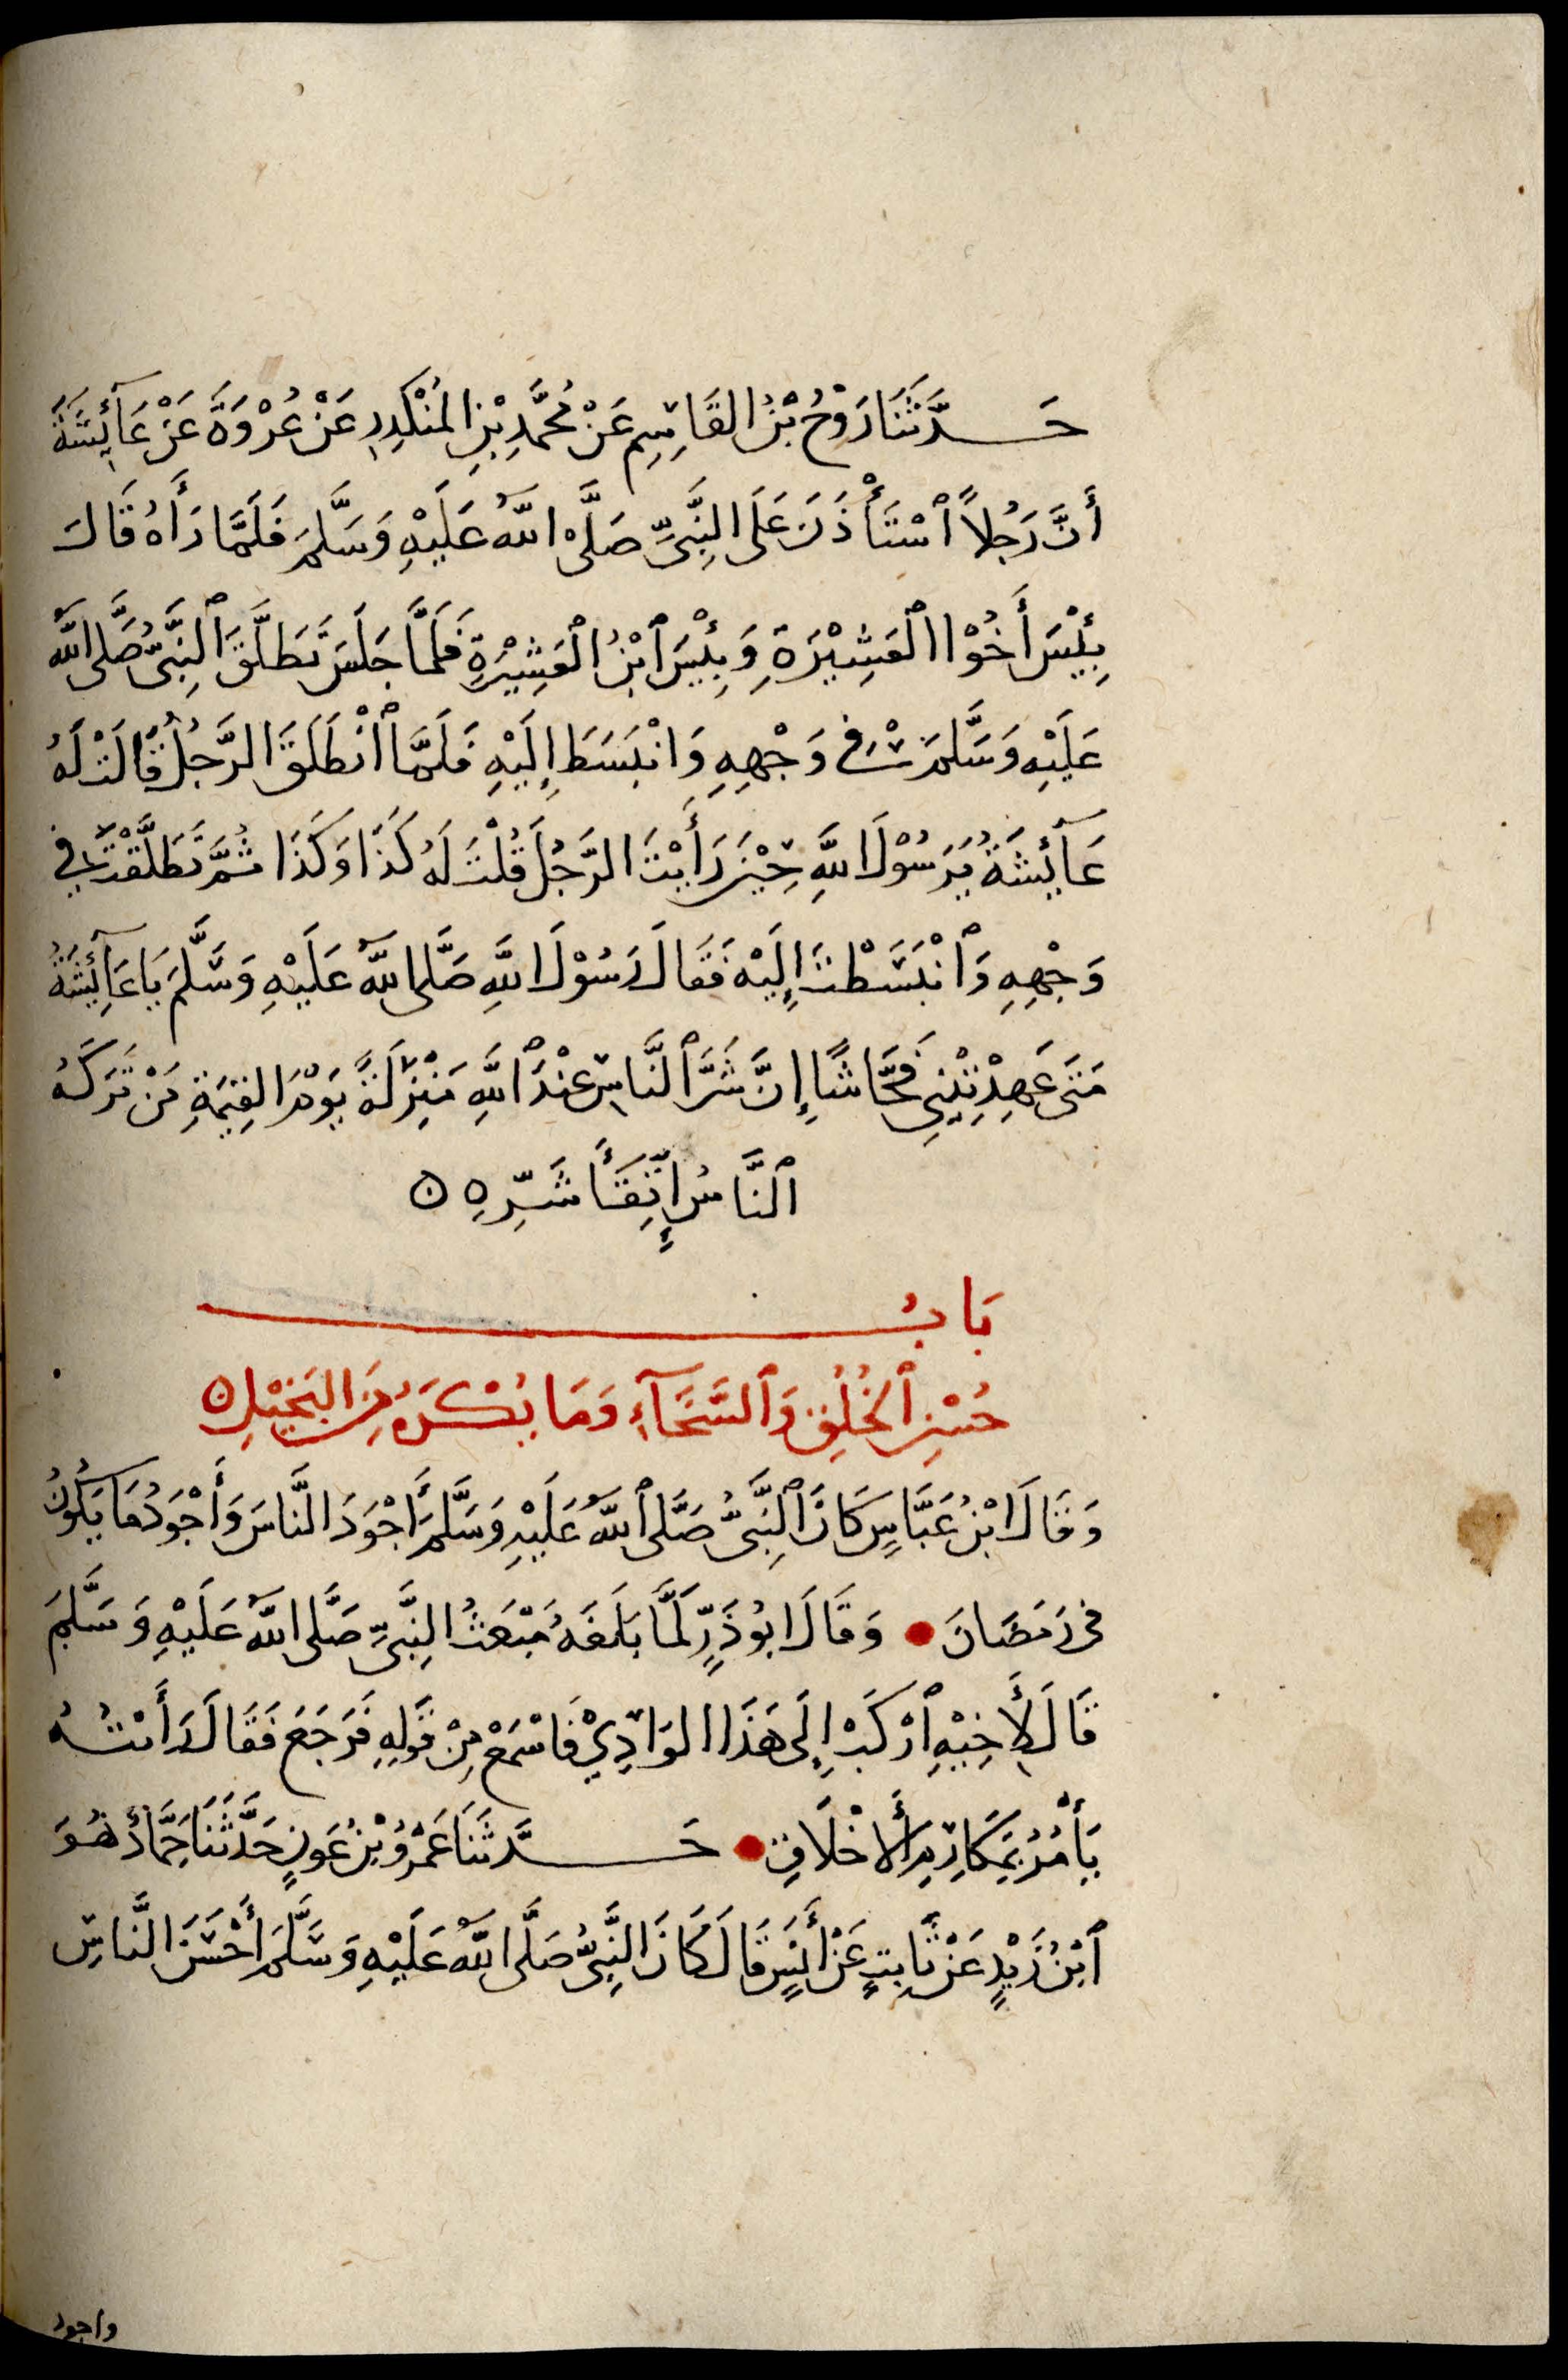 حَدَّثَنَا رَوْحُ بْنُ القَاسِمِ عَنْ مُحَمَّدِ بْنِ المُنْكَدِرِ عَنْ عُرْوَةَ عَنْ عَآئِشَةَ
أَنَّ رَجُلاً ٱسْتَأْذَنَ عَلَى النَّبِيِّ صَلَّى اللَّهُ عَلَيْهِ وَسَلَّمَ فَلَمَّا رَآهُ قَالَ
بِئْسَ أَخُوْا ٱلْعَشِيْرَةِ وَبِئْسَ ٱبْنُ ٱلْعَشِيْرَةِ فَلَمَّا جَلَسَ تَطَلَّقَ ٱلنَّبِيُّ صَلَّى اللَّه
عَلَيْهِ وَسَلَّمَ فِي وَجْهِهِ وَانْبَسَطَ إِلَيْهِ فَلَمَّا ٱنْطَلَقَ الرَّجُلُ قَالَتْ لَهُ
عَآئِشَةُ يٰرَسُوْلَ اللَّهِ حِيْنَ رَأَيْتَ الرَّجُلَ قُلْتَ لَهُ كَذَا وَكَذَا ثُمَّ تَطَلَّقْتَ فِي
وَجْهِهِ وَٱنْبَسَطْتَ إِلَيْهِ فَقَالَ رَسُوْلُ اللَّهِ صَلَّى اللَّهُ عَلَيْهِ وَسَلَّمَ يَا عَآئِشَةُ
مَتَى عَهِدْتِنِي فَحَّاشًا إِنَّ شَرَّ ٱلنَّاسِ عِنْدَ ٱللَّهِ مَنْزِلَةً يَوْمَ القِيٰمَةِ مَنْ تَرَكَهُ
ٱلنَّاسُ إِتِّقَآءَ شَرِّهِ ۝
بَابُ
حُسْنِ ٱلْخُلُقِ وَٱلسَّخَآءِ وَمَا يُكْرَهُ مِنَ البُخْلِ ۝
وَقَالَ ابْنُ عَبَّاسٍ كَانَ ٱلنَّبِيُّ صَلَّى ٱللَّهُ عَلَيْهِ وَسَلَّمَ أَجْوَدَ النَّاسِ وَأَجْوَدُ مَا يَكُونُ
فِي رَمَضَانَ ● وَقَالَ ابُوْ ذَرٍّ لَمَّا بَلَغَهُ مَبْعَثُ النَّبِيِّ صَلَّى اللَّهُ عَلَيْهِ وَسَلَّمَ
قَالَ لأَخِيْهِ ٱرْكَبْ إِلَى هَذَا الوَادِيْ فَاسْمَعْ مِنْ قَوْلِهِ فَرَجَعَ فَقَالَ رَأَيْتُهُ
يَأْمُرُ بِمَكَارِمِ ٱلأَخْلَاقِ ● حَدَّثَنَا عَمْرُو بْنُ عَوْنٍ حَدَّثَنَا حَمَّادٌ هُوَ
ٱبْنُ زَيْدٍ عَنْ ثَابِتٍ عَنْ أَنَسٍ قَالَ كَانَ النَّبِيُّ صَلَّى اللَّهُ عَلَيْهِ وَسَلَّمَ أَحْسَنَ النَّاسِ
واجود